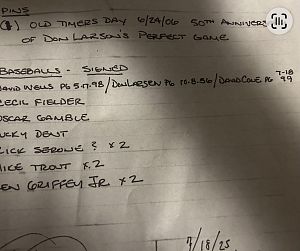 PINS
(1) OLD TIMERS DAY 6/24/06 50TH ANNIVERS
OF DON LARSON'S PERFECT GAME
BASEBALLS - SIGNED
DAVID WELLS PG 5.17.98 / DON LARSEN PG 10.8.56 / DAVID CONE PG 7-18
99
CECIL FIELDER
OSCAR GAMBLE
UCKY DENT
RICK x 2
MIKE TROUT x 2
EN GRIFFEY JR x 2
7/18/25